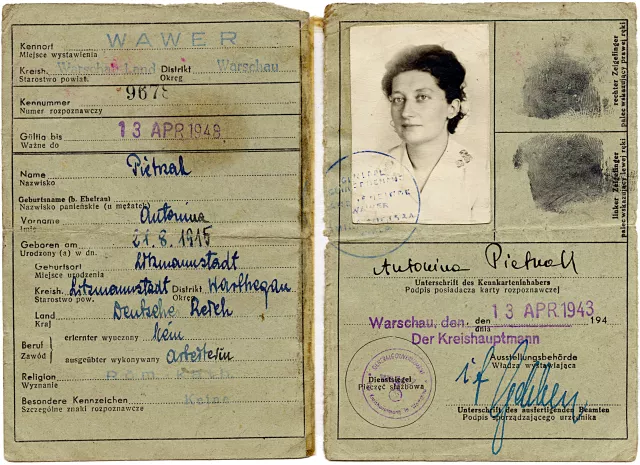 Kennort WAWER
Miejsce wystawienia
Kreish. Warschau-Land Distrikt Warschau
Starostwo powiat. Okręg
Kennummer 9678
Numer rozpoznawczy
Gültig bis 13 APR 1948
Ważne do
Name Pietrak
Nazwisko
Geburtsname (b. Ehefrau)
Nazwisko panieńskie (u mężatek)
Vorname Antonina
Imię
Geboren am 21.8.1915
Urodzony (a) w dn.
Geburtsort Litzmannstadt
Miejsce urodzenia
Kreish. Litzmannstadt Distrikt Warthegau
Starostwo pow. Okręg
Land Deutsche Reich
Kraj
Beruf erlernter wyuczony Nein
Zawód ausgeübter wykonywany Arbeiterin
Religion Röm. Kath.
Wyznanie
Besondere Kennzeichen Keine
Szczególne znaki rozpoznawcze
rechter Zeigefinger
palec wskazujący prawej ręki
linker Zeigefinger
palec wskazujący lewej ręki
WAWER
Antonina Pietrak
Unterschrift des Kennkarteninhabers
Podpis posiadacza karty rozpoznawczej
Warschau, den, den 13 APR 1943 194
dnia
Der Kreishauptmann
Ausstellungsbehörde
Władza wystawiająca
Dienstsiegel
Pieczęć służbowa
Unterschrift des ausfertigenden Beamten
Podpis sporządzającego urzędnika